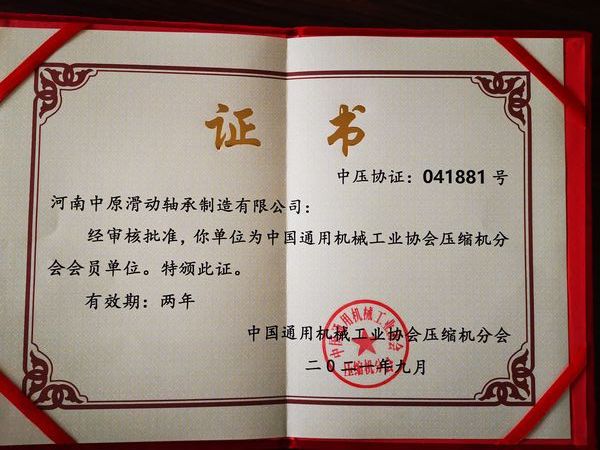 证 书
中压协证：041881 号
河南中原滑动轴承制造有限公司：
经审核批准，你单位为中国通用机械工业协会压缩机分
会会员单位。特颁此证。
有效期：两年
中国通用机械工业协会压缩机分会
年九月
中国通用机械工业协会
压缩机分会